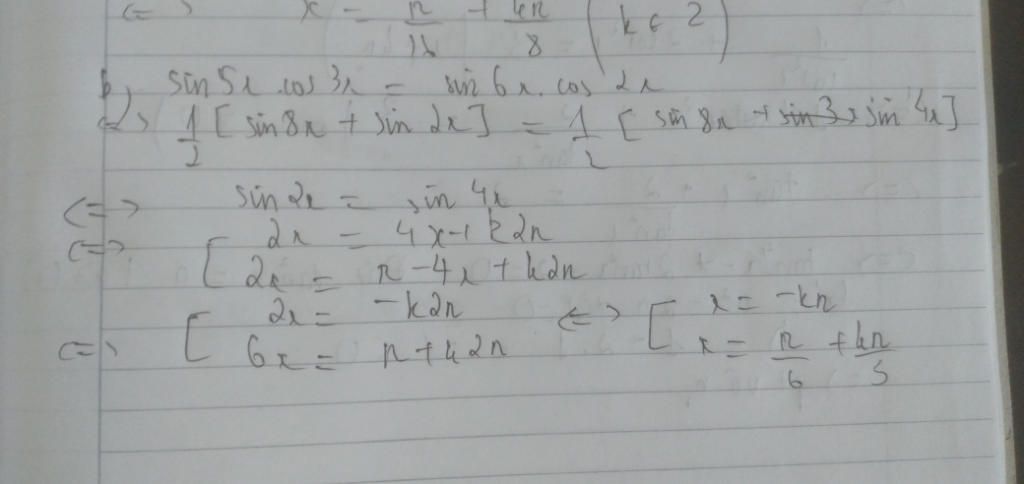 <=> x = π/16 + kπ/8 (k ∈ Z)
b, sin5x.cos3x = sin6x.cos2x
<=> 1/2 [sin8x + sin2x] = 1/2 [sin8x + sin3x sin4x]
<=> sin2x = sin4x
<=> [ 2x = 4x + k2π
2x = π - 4x + k2π
<=> [ 2x = -k2π <=> [ x = -kπ
6x = π + k2π x = π/6 + kπ/3